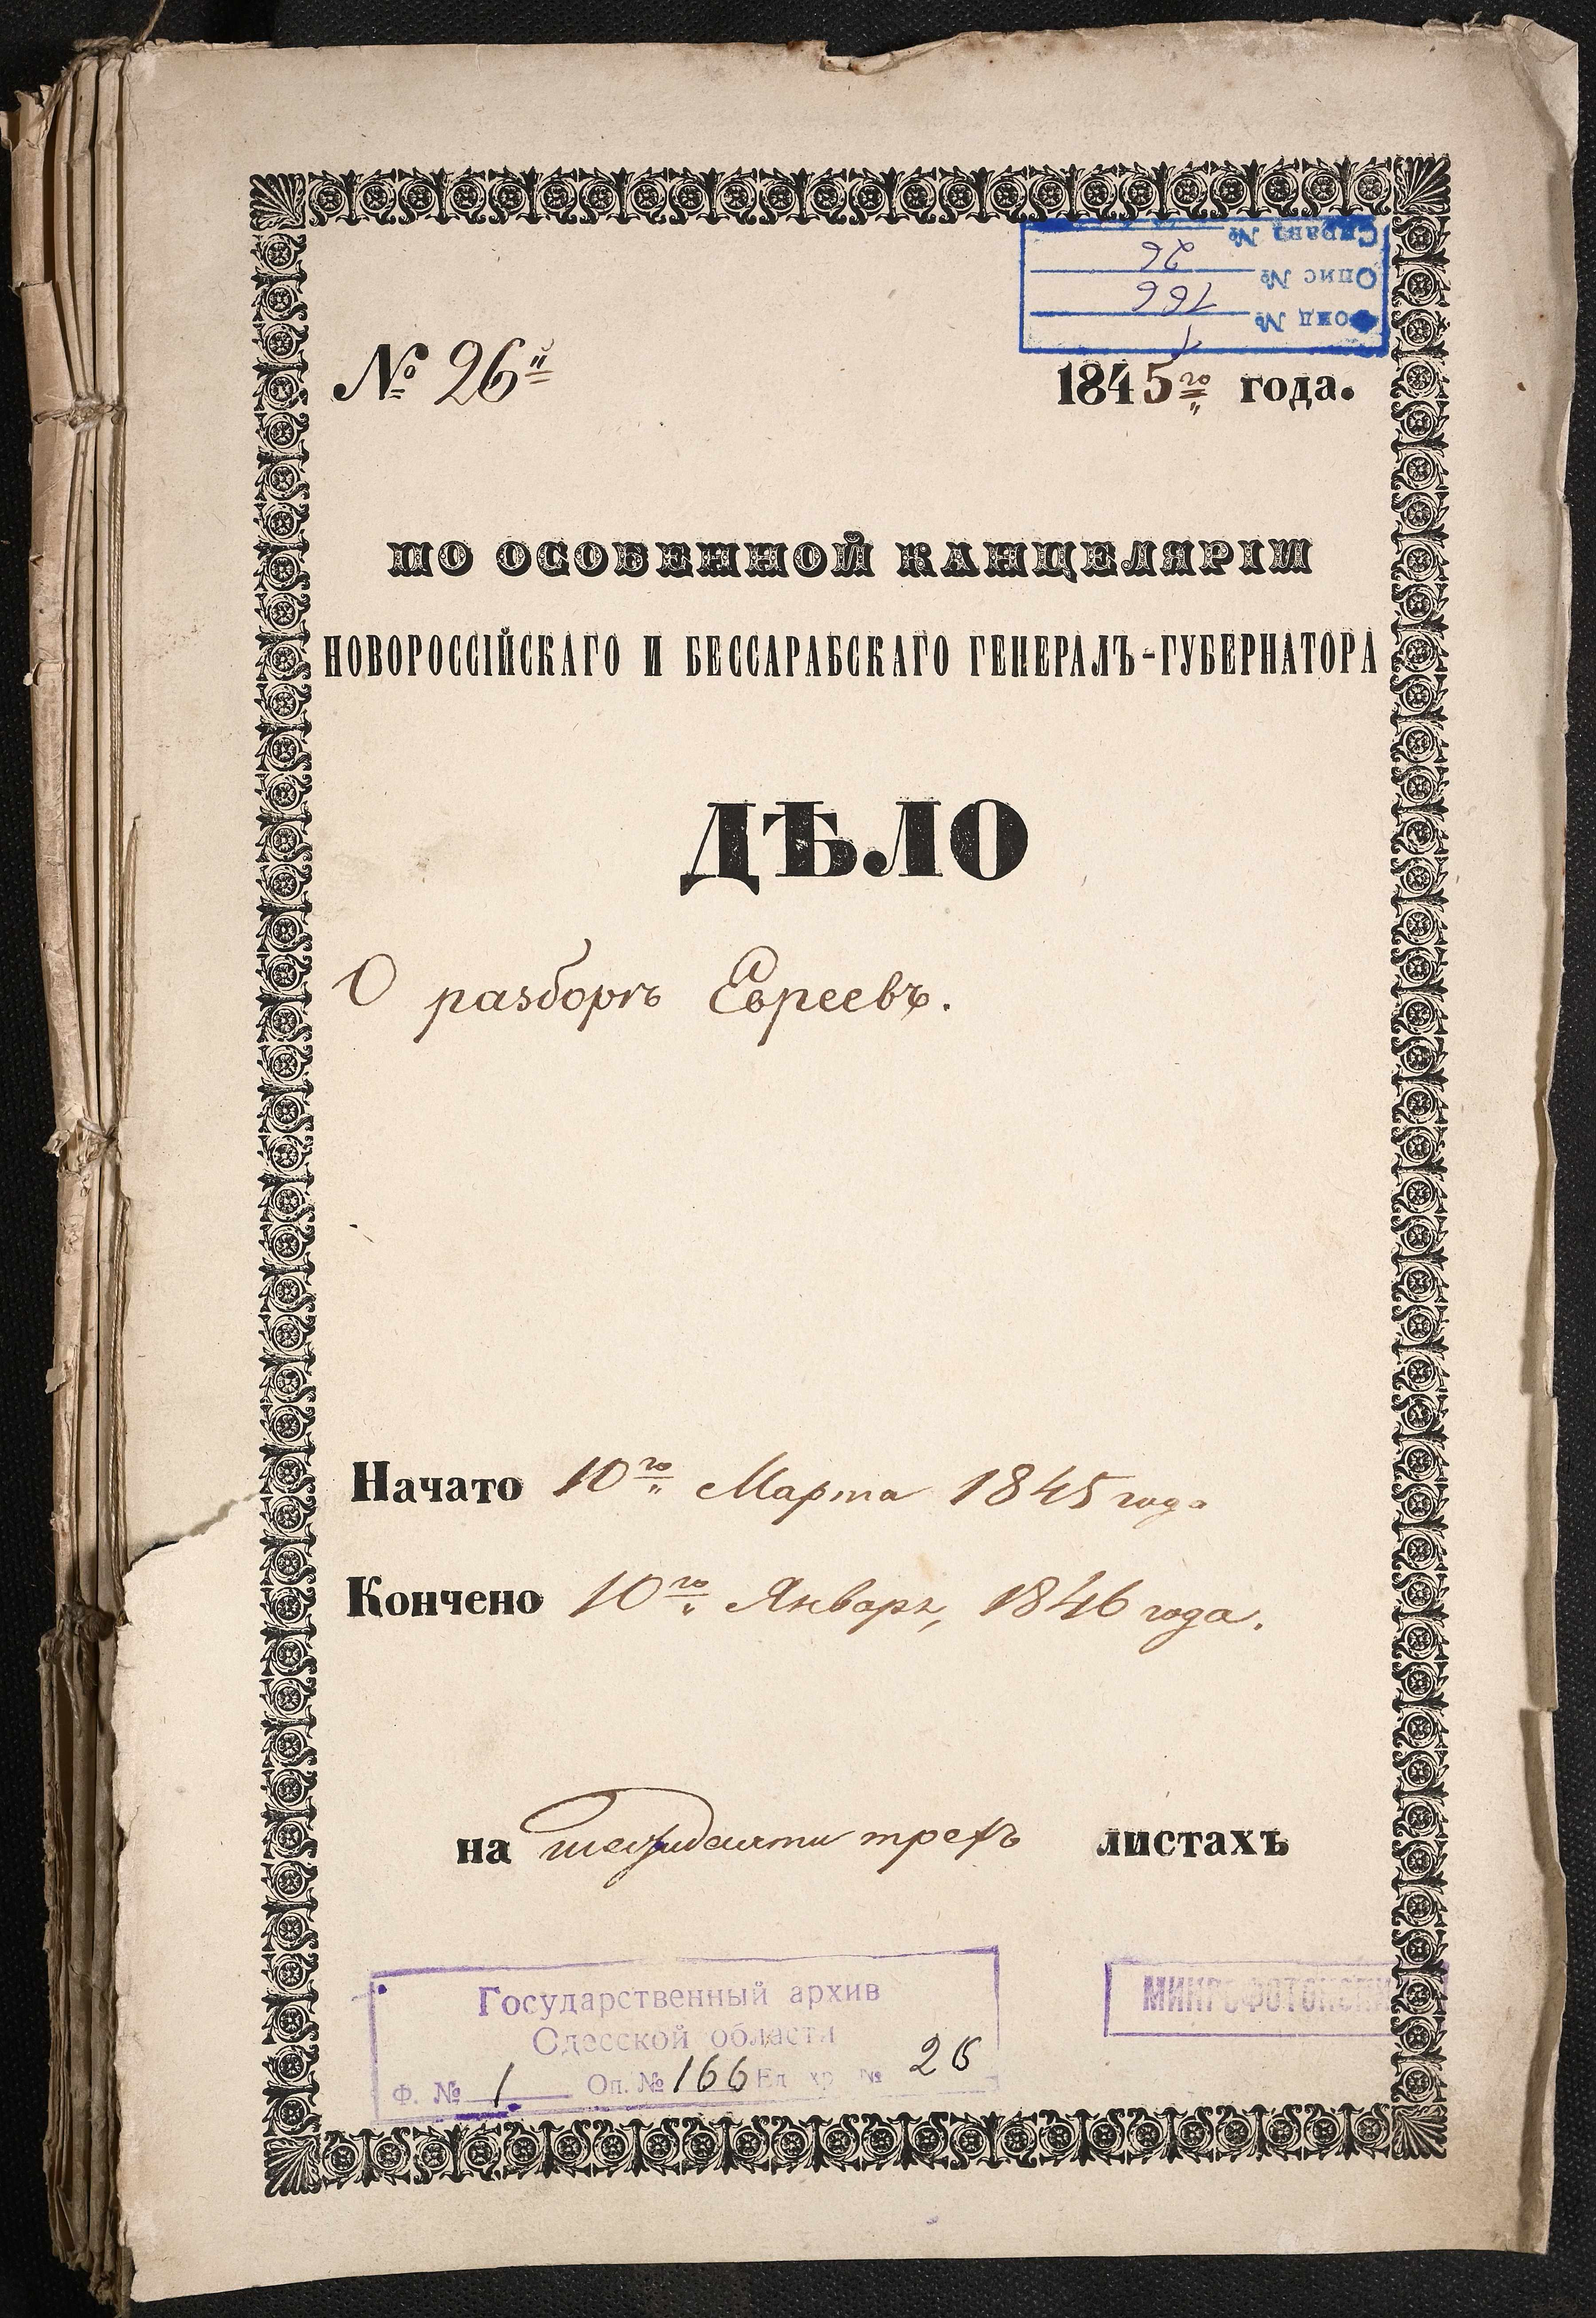 Справа № 26
Опис № 166
Фонд № 1
№ 26й
1845го года.
ПО ОСОБЕННОЙ КАНЦЕЛЯРІИ
НОВОРОССІЙСКАГО И БЕССАРАБСКАГО ГЕНЕРАЛЪ-ГУБЕРНАТОРА
ДѢЛО
О разборѣ Евреевъ.
Начато 10го Марта 1845 года
Кончено 10го Января, 1846 года.
на шестидесяти трехъ листахъ
Государственный архив
Одесской области
Ф. № 1 Оп. № 166 Ед. хр. № 26